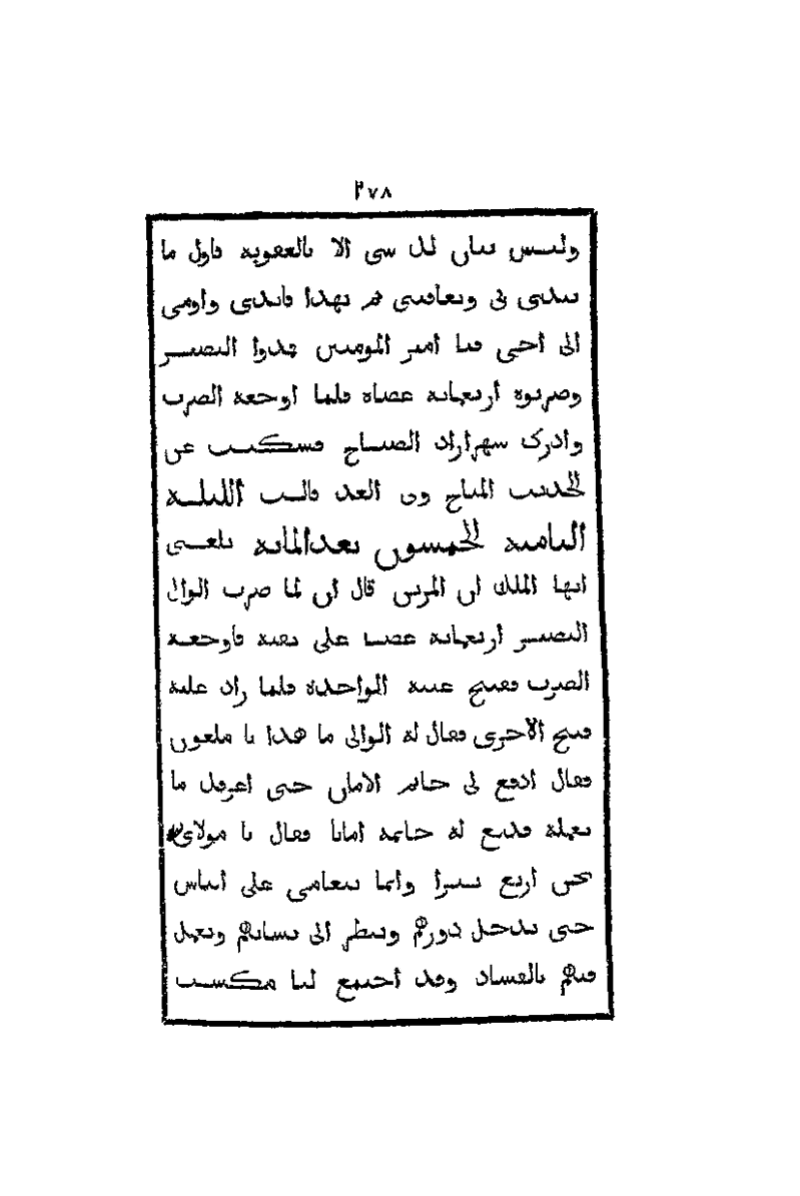 ٢٧٨
وليس يبان لك شي الا بالعقوبه فاول ما
تبتدي بي وتعاقبني ثم بهذا فابتدي واومي
الى اخي فيا امير المومنين مدوا البصير
وضربوه اربعمايه عصاه فلما اوجعه الضرب
وادرك شهرازاد الصباح فسكتت عن
الحديث المباح وفي الغد قالت الليلة
الثامنة الخمسون بعدالمائة بلغني
ايها الملك ان المزين قال ان لما ضرب الوالي
البصير اربعمايه عصا على بقيه فاوجعه
الضرب ففتح عينه الواحدة فلما زاد عليه
فتح الاخرى فقال له الوالي ما هذا يا ملعون
فقال ادفع لي خاتم الامان حتى اعرفك ما
نعمله فدفع له خاتمه امانا فقال يا مولاي
نحن اربع بصرا وانما نتعامى على الناس
حتى ندخل دورهم وننظر الى نسائهم ونعمل
فيهم بالفساد وقد اجتمع لنا مكسب